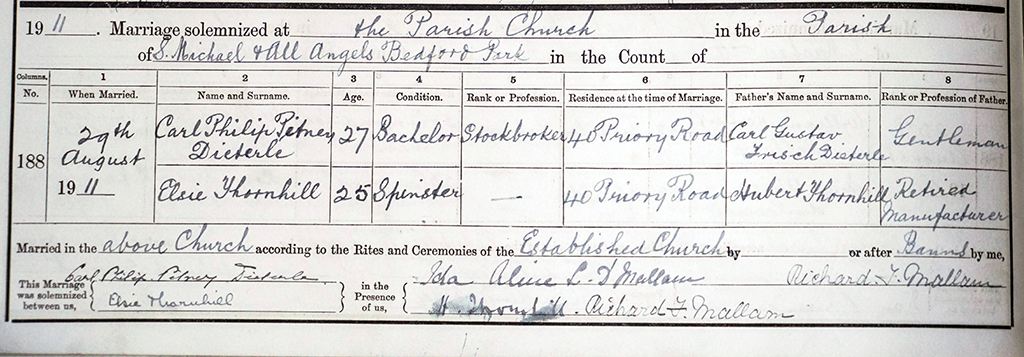 19 11. Marriage solemnized at the Parish Church in the Parish
of S. Michael & All Angels Bedford Park in the Count of
Columns. 1 2 3 4 5 6 7 8
No. When Married. Name and Surname. Age. Condition. Rank or Profession. Residence at the time of Marriage. Father's Name and Surname. Rank or Profession of Father.
188
29th August 1911
Carl Philip Pitney Dieterle 27 Bachelor Stockbroker 40 Priory Road Carl Gustav Frisch Dieterle Gentleman
Elsie Thornhill 25 Spinster — 40 Priory Road Hubert Thornhill Retired Manufacturer
Married in the above Church according to the Rites and Ceremonies of the Established Church by or after Banns by me,
This Marriage was solemnized between us, Carl Philip Pitney Dieterle in the Presence of us, Ida Aline L. D Mallam Richard F. Mallam
Elsie Thornhill H. Thornhill. Richard F. Mallam